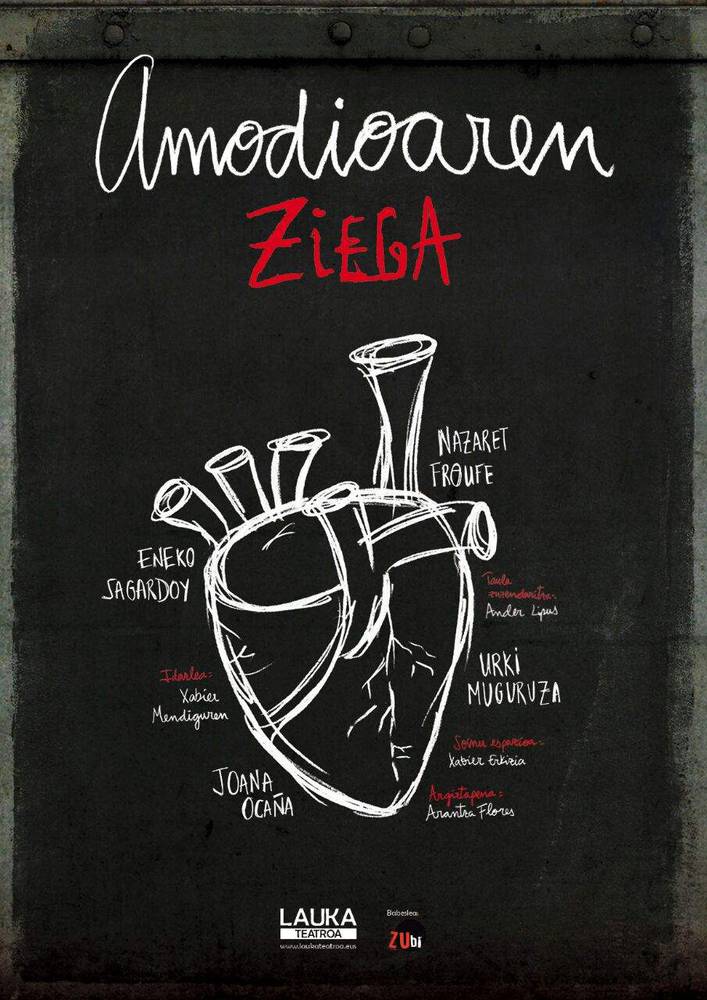 Amodioaren
ZiEGA
NAZARET
FROUFE
ENEKO
SAGARDOY
Taula
zuzendaritza:
Ander Lipus
URKi
MUGURUZA
Idazlea:
Xabier
Mendiguren
Soinu espazioa:
Xabier Erkizia
JOANA
OCAÑA
Argiztapena:
Arantza Flores
LAUKA
TEATROA
www.laukateatroa.eus
Babeslea:
ZUbi